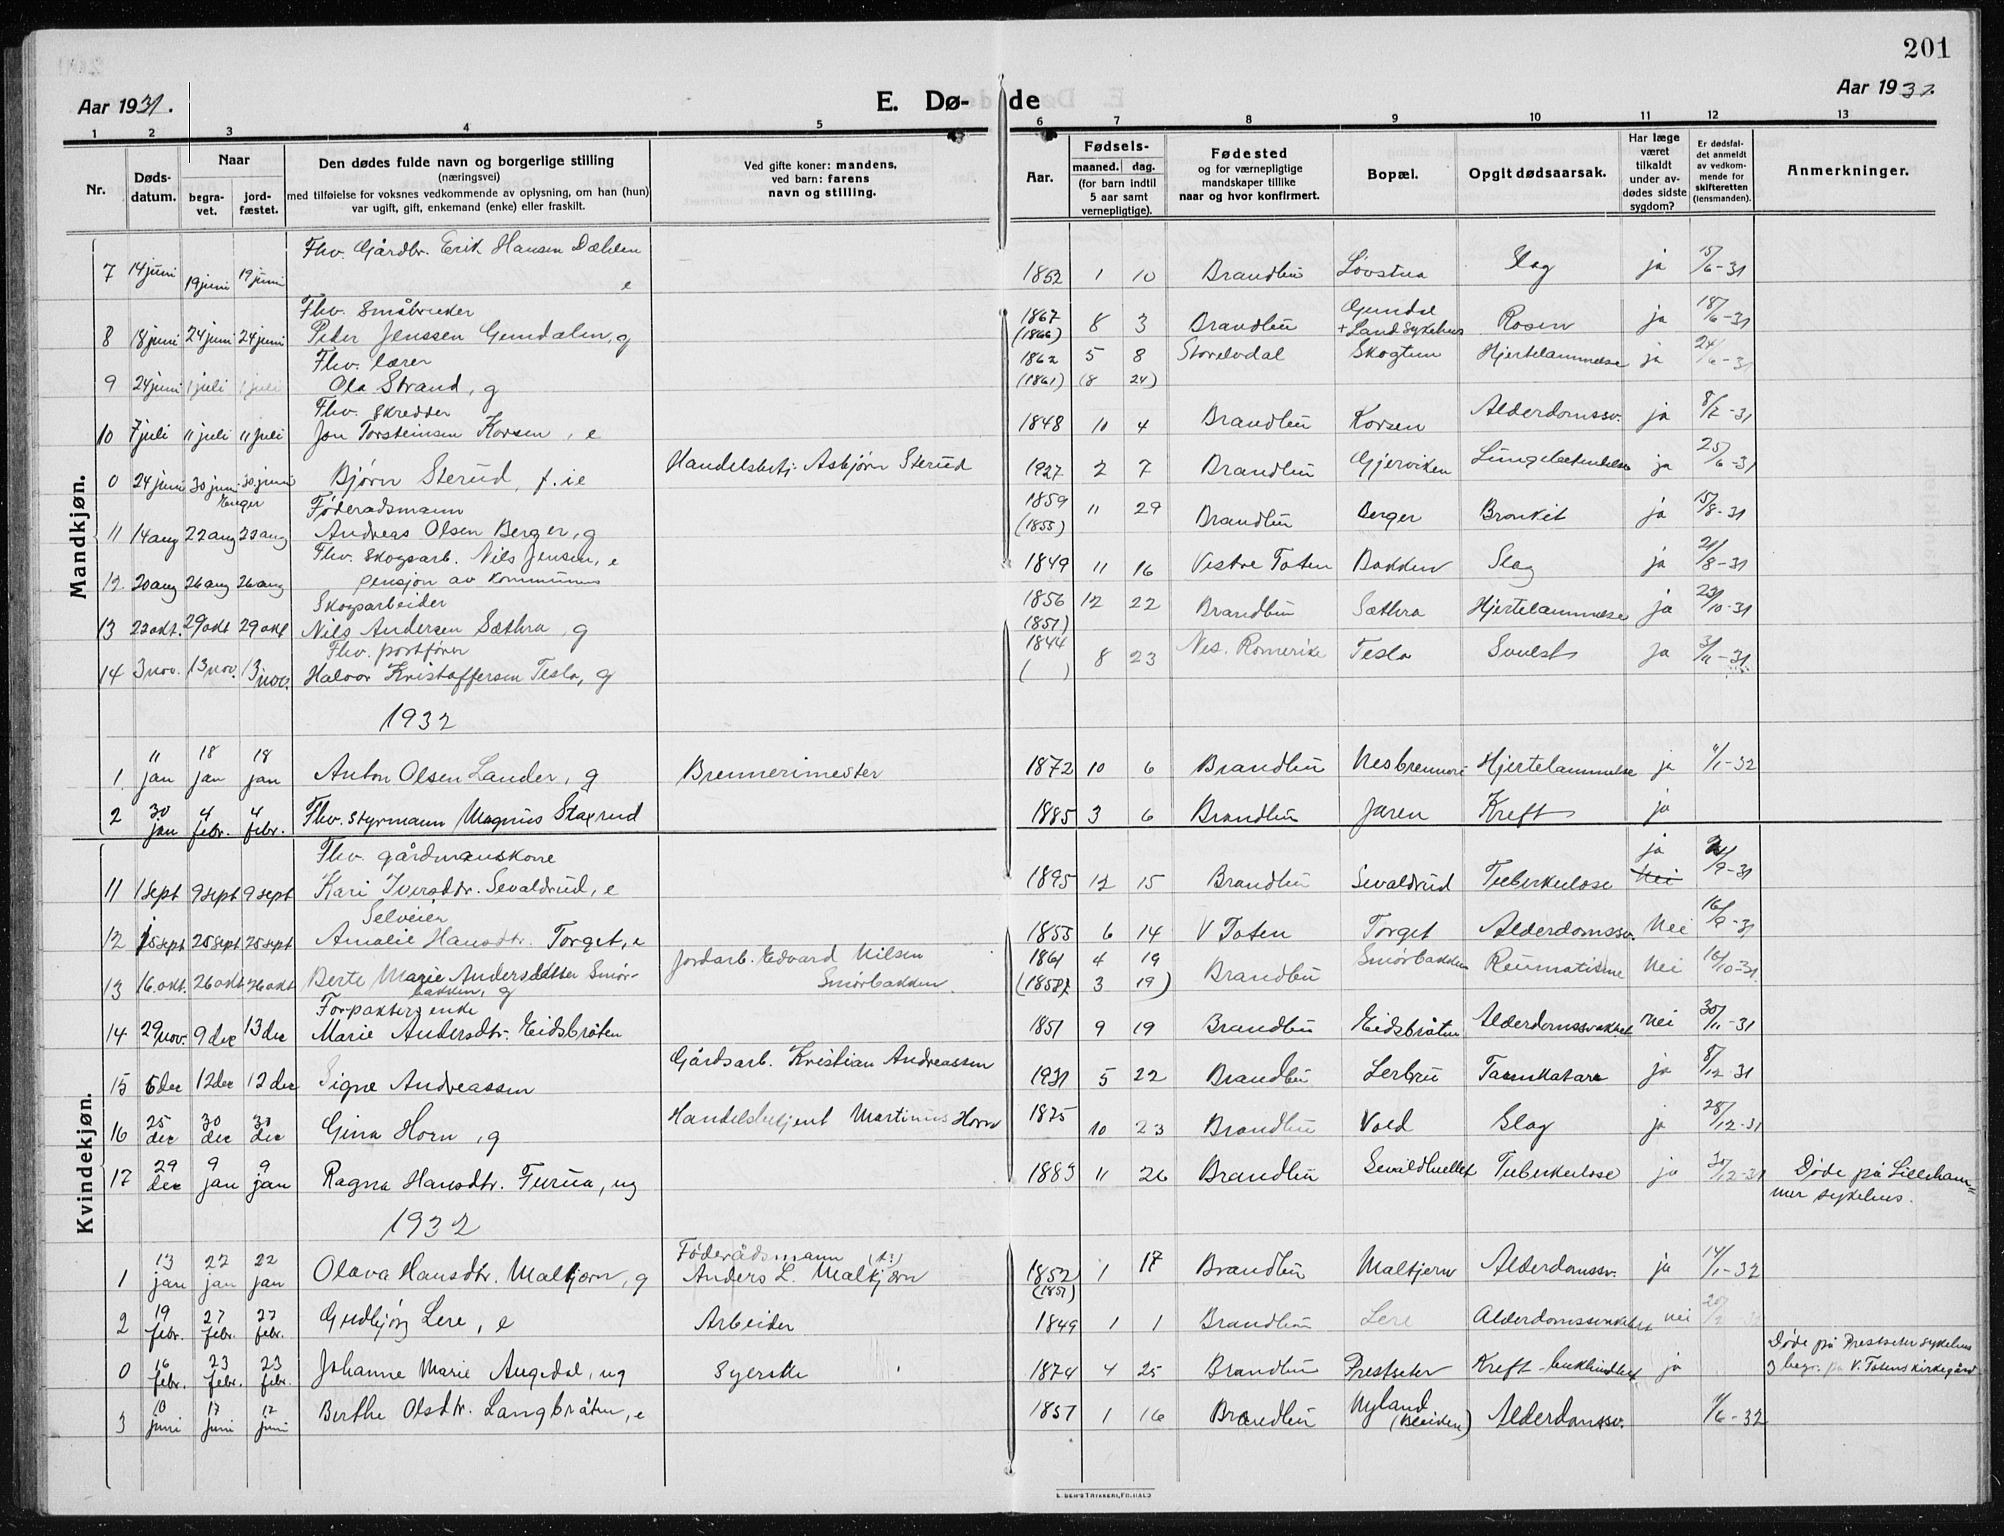 201
Aar 1931.
E. Dø-
de
Aar 1932.
1 2 3 4 5 6 7 8 9 10 11 12 13
Nr.
Døds-
datum.
Naar
begra-
vet.
jord-
fæstet.
Den dødes fulde navn og borgerlige stilling
(næringsvei)
med tilføielse for voksnes vedkommende av oplysning, om han (hun)
var ugift, gift, enkemand (enke) eller fraskilt.
Ved gifte koner: mandens,
ved barn: farens
navn og stilling.
Aar.
Fødsels-
maaned. dag.
(for barn indtil
5 aar samt
vernepligtige).
Fødested
og for værnepligtige
mandskaper tillike
naar og hvor konfirmert.
Bopæl.
Opgit dødsaarsak.
Har læge
været
tilkaldt
under av-
dødes sidste
sygdom?
Er dødsfal-
det anmeldt
av vedkom-
mende for
skifteretten
(lensmanden).
Anmerkninger.
Mandkjøn.
Fhv. Gårdbr. Erik Hansen Dæhlen
7 14 juni 19 juni 19 juni e 1852 1 10 Brandbu Løvstua Slag ja 15/6-31
Fhv. Småbruker 1867 Grindal
8 18 juni 24 juni 24 juni Peder Jenssen Grindalen, g (1866) 8 3 Brandbu + Land Sykehus Rosen ja 18/6-31
Fhv. lærer 1862 5 8 Storelvdal Skogtun Hjertelammelse ja 24/6-31
9 24 juni 1 juli 1 juli Ola Strand, g (1861) (8 24)
Fhv. Skredder
10 7 juli 11 juli 11 juli Jon Torsteinsen Korsen, e 1848 10 4 Brandbu Korsen Alderdomssv. ja 8/7-31
0 24 juni 30 juni 30 juni Bjørn Sterud, f. ie Handelsbetj. Asbjørn Sterud 1927 2 7 Brandbu Gjøvikен Lungebetendelse ja 25/6-31
Enger Føderadsmann 1859
11 14 aug 22 aug 22 aug Andreas Olsen Berger, g (1855) 11 29 Brandbu Berger Bronkit ja 15/8-31
Fhv. Skogsarb. Nils Jensen, e
12. 20 aug 26 aug 26 aug pensjon av kommunens 1849 11 16 Vestre Toten Bakken Slag ja 21/8-31
Skogsarbeider 1856
13 22 okt. 29 okt 29 okt Nils Andersen Sæthra, g (1851) 12 22 Brandbu Sæthra Hjertelammelse ja 23/10-31
Fhv. postfører 1844
14 3 nov. 13 nov. 13 nov. Halvor Kristoffersen Tesla, g ( ) 8 23 Nes. Romerike Tesla Svulst ja 3/11-31
1932
1 11 jan 18 jan 18 jan Anton Olsen Lander, g Brennerimester 1872 10 6 Brandbu Nesbrenneri Hjertelammelse ja 11/1-32
2 30 jan 4 febr. 4 febr. Fhv. styrmann Magnus Staxrud 1885 3 6 Brandbu Jaren Kreft ja
Kvindekjøn.
Fhv. gårdmannskone ja
11 1 sept 9 sept 9 sept Kari Iversdtr. Sevaldrud, e 1895 12 15 Brandbu Sevaldrud Tuberkulose Nei 2/9-31
Selveier
12 15 sept 25 sept 25 sept Amalie Hansdtr. Torget, e 1853 6 14 V Toten Torget Alderdomssv. Nei 16/9-31
Jordarb. Edvard Nilsen 1861 4 19 Smørbakken
13 16. okt. 26 okt 26 okt Berte Marie Andersdatter Smør-
bakken, g Smørbakken. (1858) 3 19) Brandbu Reumatisme Nei 16/10-31
Forpakters enke
14 29 nov. 9 dec 13 dec Marie Andersdtr. Eidsbråten 1851 9 19 Brandbu Eidsbråten Alderdomssvakhet Nei 30/11-31
15 6 dec 12 dec 12 dec Signe Andreassen Gårdsarb. Kristian Andreassen 1931 5 22 Brandbu Lerbru Tarmkatarr ja 8/12-31
16 25 dec 30 dec 30 dec Gina Horn, g Handelsbetjent Martinus Horn 1875 10 23 Brandbu Vold Slag ja 28/12-31
17 29 dec 9 jan 9 jan Ragna Hansdtr. Furua, ug 1883 11 26 Brandbu Tuberkulose ja 30/12-31 Døde på Lilleham=
mer sykehus.
1932
Føderådsmann
1 13 jan 22 jan 22 jan Olava Hansdtr. Malkjørn, g Anders L. Malkjørn 1852 (1851) 1 17 Brandbu Malkjern Alderdomssv. ja 14/1-32
2 19 febr. 27 febr. 27 febr. Gudbjørg Lere, e Arbeider 1849 1 1 Brandbu Lere Alderdomssvakhet nei 20/2-32
0 16 febr. 23 febr. 23 febr. Johanne Marie Augedal, ug Syerske 1874 4 25 Brandbu Prestseter Kreft ja Døde på Prestseter sykehus
begr. på V. Totens kirkegård
3 10 juni 17 juni 17 juni Berthe Olsdtr. Langbråten, e 1851 1 16 Brandbu Nyland Alderdomssv. 11/6-32